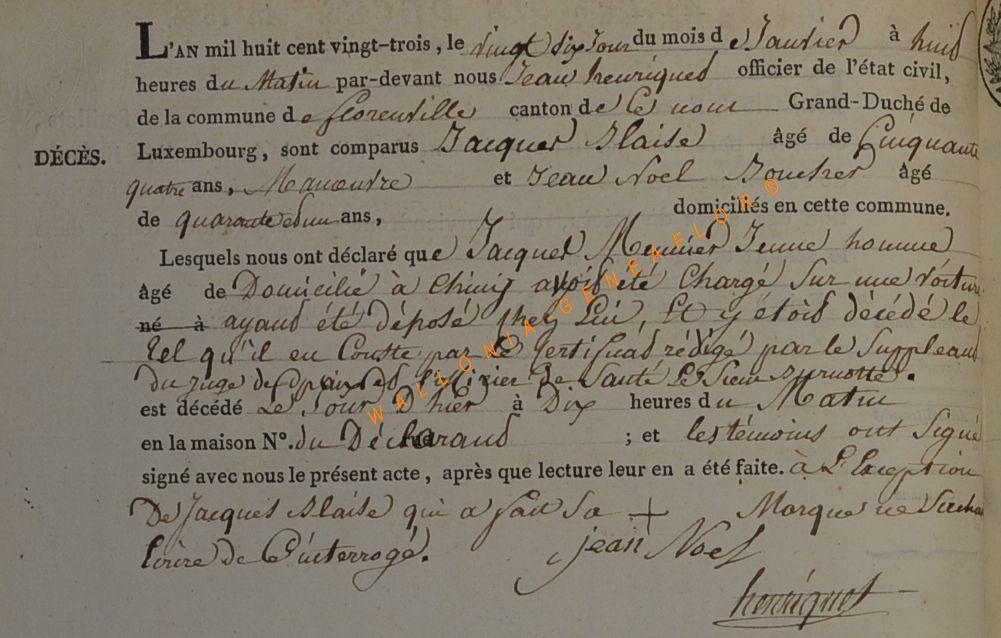 L'AN mil huit cent vingt-trois, le vingt six Jour du mois de Janvier à huit
heures du Matin par-devant nous Jean henriquet officier de l'état civil,
de la commune de florenville canton de Ce nom Grand-Duché de
DÉCÈS. Luxembourg, sont comparus Jacques Blaise âgé de Cinquante
quatre ans, Manœuvre et Jean Noel âgé
de quarante et un ans, domiciliés en cette commune.
Lesquels nous ont déclaré que Jacques Meunier Jeune homme
âgé de Domicilié à Chiny avoit été Chargé Sur une voiture
né à ayant été déposé chez Lui, Et y étoit décédé le
tel qu'il en Conste par le Certificat rédigé par le Suppleant
du Juge de paix et l'officier De Santé Le Sieur
est décédé Le Jour D'hier à Dix heures du Matin
en la maison N°. du Déclarant ; et les témoins ont Signé
signé avec nous le présent acte, après que lecture leur en a été faite. à L'Exception
De Jacques Blaise qui a fait Sa + Marque ne Sachant
Ecrire de Ce interrogé.
jean Noel
henriquet
WALLONIA GENEAFLOR ®